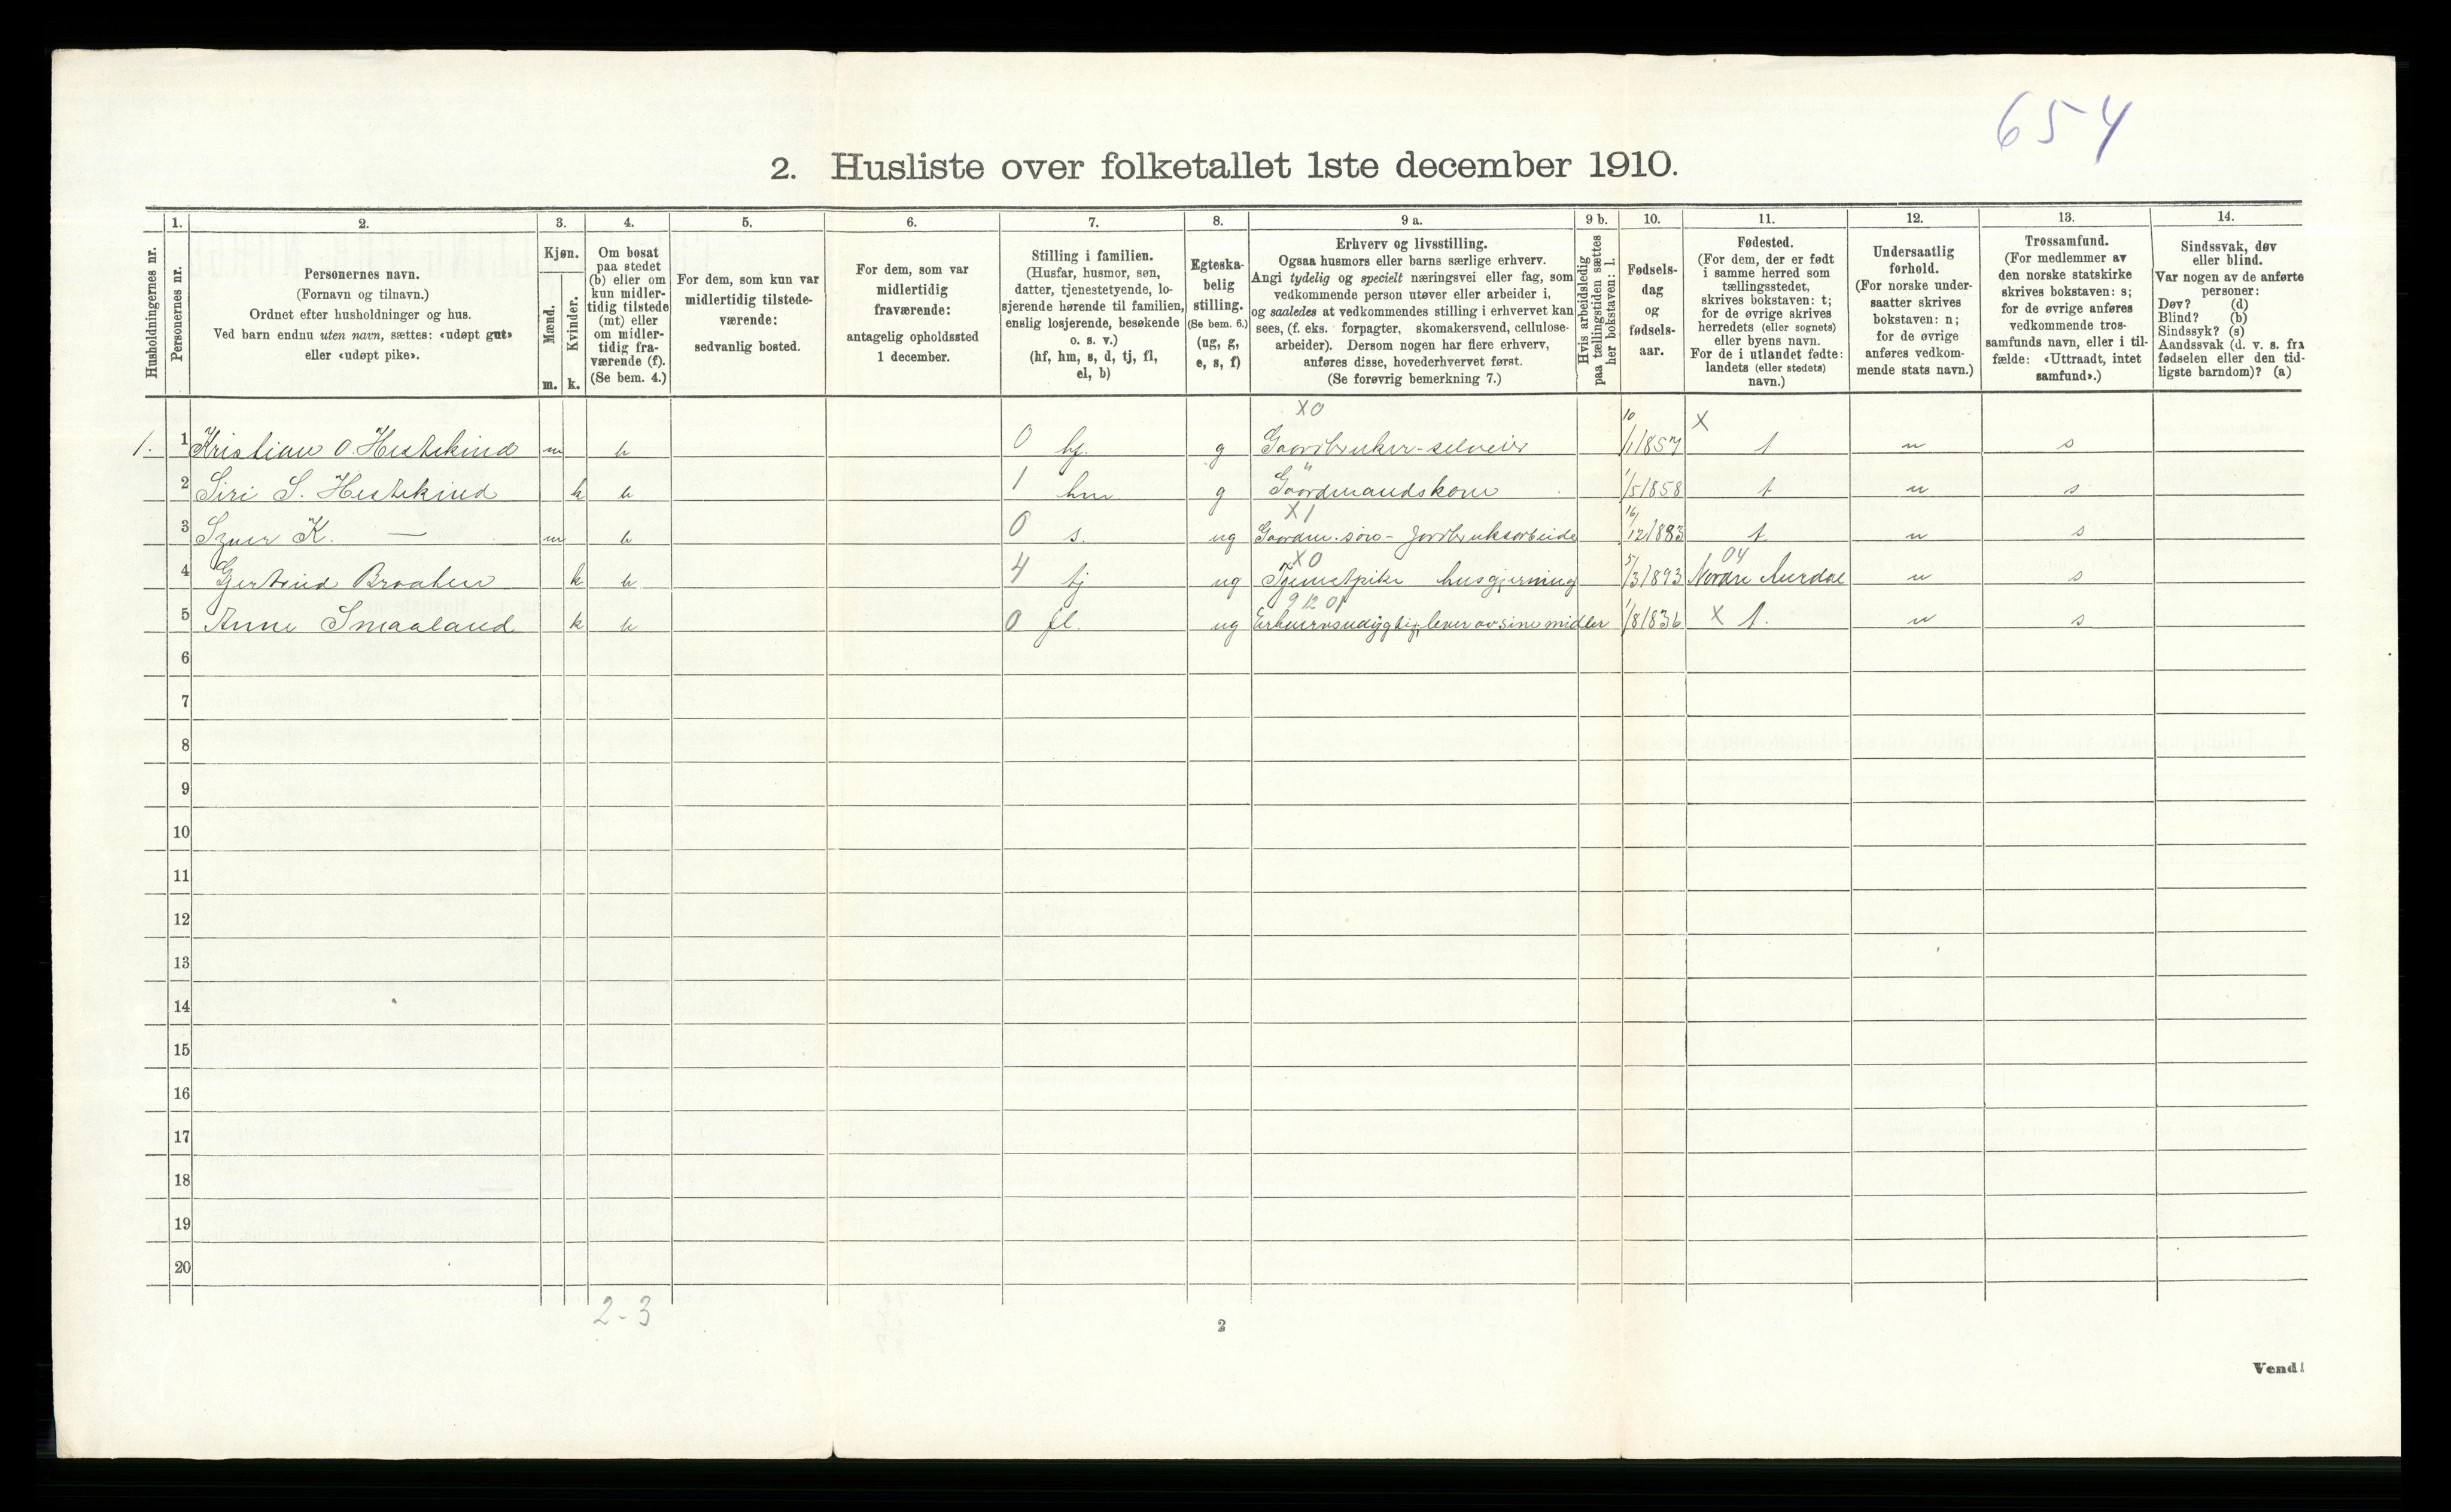 654
2. Husliste over folketallet 1ste december 1910.
Husholdningernes nr.
1.
Personernes nr.
2.
Personernes navn.
(Fornavn og tilnavn.)
Ordnet efter husholdninger og hus.
Ved barn endnu uten navn, sættes: «udøpt gut»
eller «udøpt pike».
3.
Kjøn.
Mænd.
m.
Kvinder.
k.
4.
Om bosat
paa stedet
(b) eller om
kun midler-
tidig tilstede
(mt) eller
om midler-
tidig fra-
værende (f).
(Se bem. 4.)
5.
For dem, som kun var
midlertidig tilstede-
værende:
sedvanlig bosted.
6.
For dem, som var
midlertidig
fraværende:
antagelig opholdssted
1 december.
7.
Stilling i familien.
(Husfar, husmor, søn,
datter, tjenestetyende, lo-
sjerende hørende til familien,
enslig losjerende, besøkende
o. s. v.)
(hf, hm, s, d, tj, fl,
el, b)
8.
Egteska-
belig
stilling.
(Se bem. 6.)
(ug, g,
e, s, f)
9 a.
Erhverv og livsstilling.
Ogsaa husmors eller barns særlige erhverv.
Angi tydelig og specielt næringsvei eller fag, som
vedkommende person utøver eller arbeider i,
og saaledes at vedkommendes stilling i erhvervet kan
sees, (f. eks. forpagter, skomakersvend, cellulose-
arbeider). Dersom nogen har flere erhverv,
anføres disse, hovederhvervet først.
(Se forøvrig bemerkning 7.)
9 b.
Hvis arbeidsledig
paa tællingstiden sættes
her bokstaven: l.
10.
Fødsels-
dag
og
fødsels-
aar.
11.
Fødested.
(For dem, der er født
i samme herred som
tællingsstedet,
skrives bokstaven: t;
for de øvrige skrives
herredets (eller sognets)
eller byens navn.
For de i utlandet fødte:
landets (eller stedets)
navn.)
12.
Undersaatlig
forhold.
(For norske under-
saatter skrives
bokstaven: n;
for de øvrige
anføres vedkom-
mende stats navn.)
13.
Trossamfund.
(For medlemmer av
den norske statskirke
skrives bokstaven: s;
for de øvrige anføres
vedkommende tros-
samfunds navn, eller i til-
fælde: «Uttraadt, intet
samfund».)
14.
Sindssvak, døv
eller blind.
Var nogen av de anførte
personer:
Døv? (d)
Blind? (b)
Sindssyk? (s)
Aandssvak (d. v. s. fra
fødselen eller den tid-
ligste barndom)? (a)
X0 10 X
1. 1 Kristian O. Hestekind m b 0 hf. g Gaardbruker-selveier /1 1857 t n s
2 Siri S. Hestekind k b 1 hm g Gaardmandskone 1/5 1858 t n s
X1
3 K. — m b 0 s. ug Gaardm. søn - Jordbruksarbeide 16/12 1883 t n s
X0 04
4 Gjertrud Braaten k b 4 tj ug Tjenestpike husgjerning 5/3 1893 Nordre Aurdal n s
9 12 01
5 Anne Smaaland k b 0 fl. ug Erhvervsudygtig, lever av sine midler 1/8 1836 X t. n s
6
7
8
9
10
11
12
13
14
15
16
17
18
19
20
2-3
2
Vend!